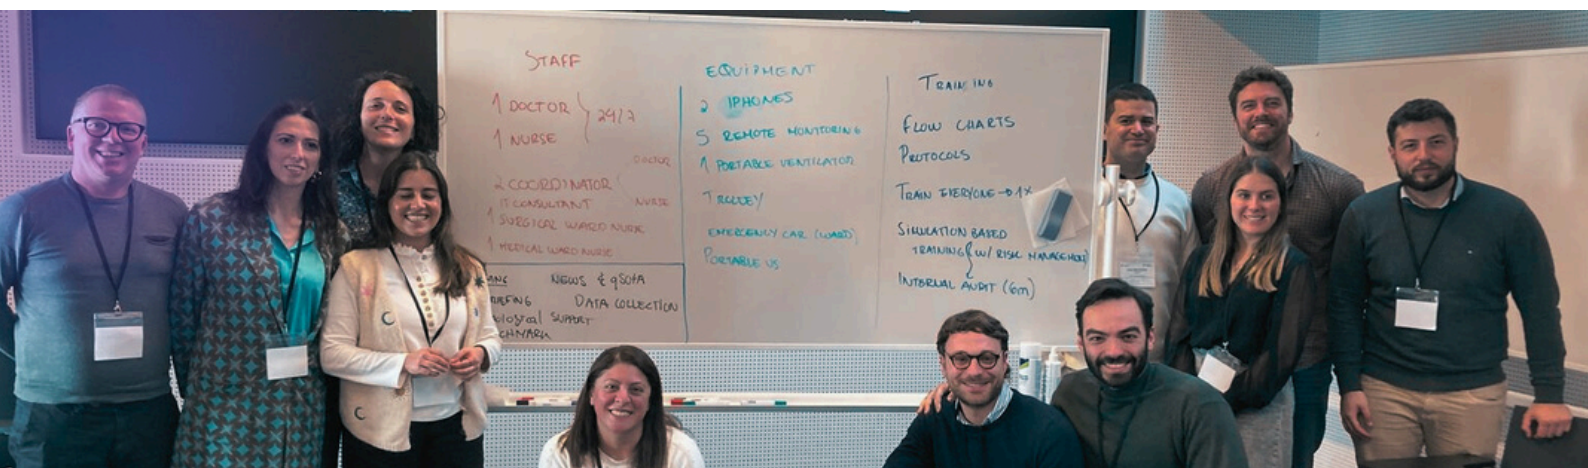 STAFF
1 DOCTOR
1 NURSE
24/7
DOCTOR
2 COORDINATOR
NURSE
IT CONSULTANT
1 SURGICAL WARD NURSE
1 MEDICAL WARD NURSE
NEWS & qSOFA
DATA COLLECTION
SUPPORT
EQUIPMENT
2 IPHONES
5 REMOTE MONITORING
1 PORTABLE VENTILATOR
TROLLEY
EMERGENCY CAR (WARD)
PORTABLE US
TRAINING
FLOW CHARTS
PROTOCOLS
TRAIN EVERYONE → 1x
SIMULATION BASED
TRAINING W/ RISK MANAGEMENT
INTERNAL AUDIT (6m)